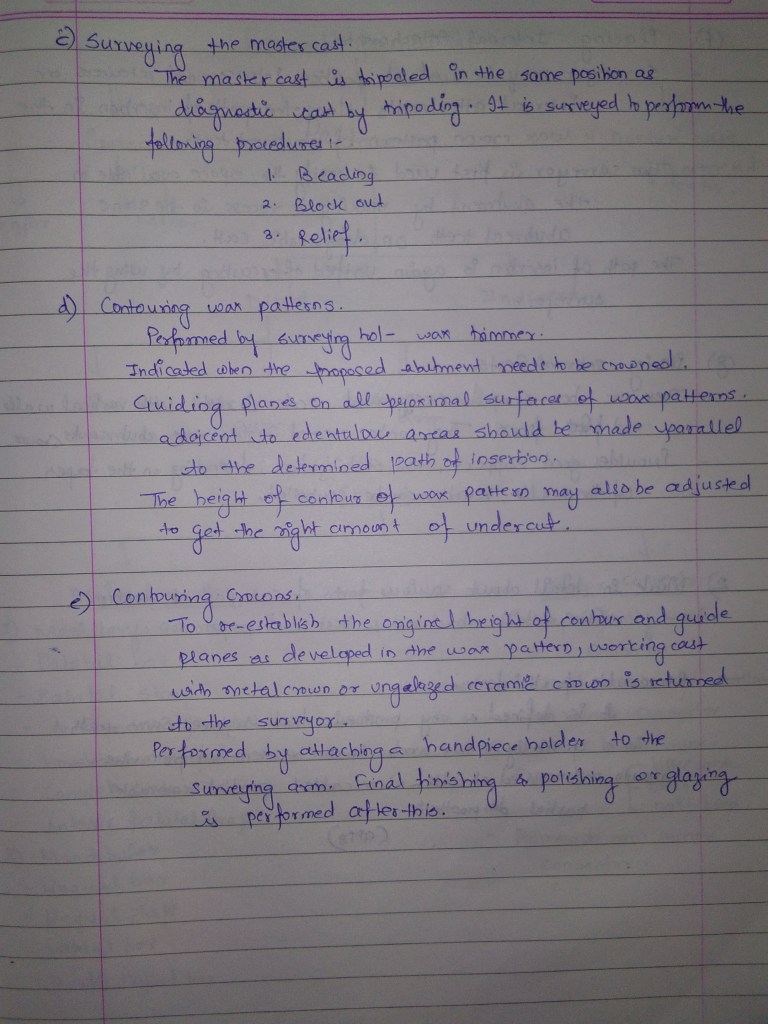 c) Surveying the master cast.
The master cast is tripoded in the same position as
diagnostic cast by tripoding. It is surveyed to perform the
following procedures :-
1. Beading
2. Block out
3. Relief.
d) Contouring wax patterns.
Performed by surveying hol- wax trimmer.
Indicated when the proposed abutment needs to be crowned.
Guiding planes on all proximal surfaces of wax patterns.
adajcent to edentulous areas should be made parallel
to the determined path of insertion.
The height of contour of wax pattern may also be adjusted
to get the right amount of undercut.
e) Contouring Crowns.
To re-establish the original height of contour and guide
planes as developed in the wax pattern, working cast
with metal crown or unglazed ceramic crown is returned
to the surveyor.
Performed by attaching a handpiece holder to the
surveying arm. Final finishing & polishing or glazing
is performed after this.